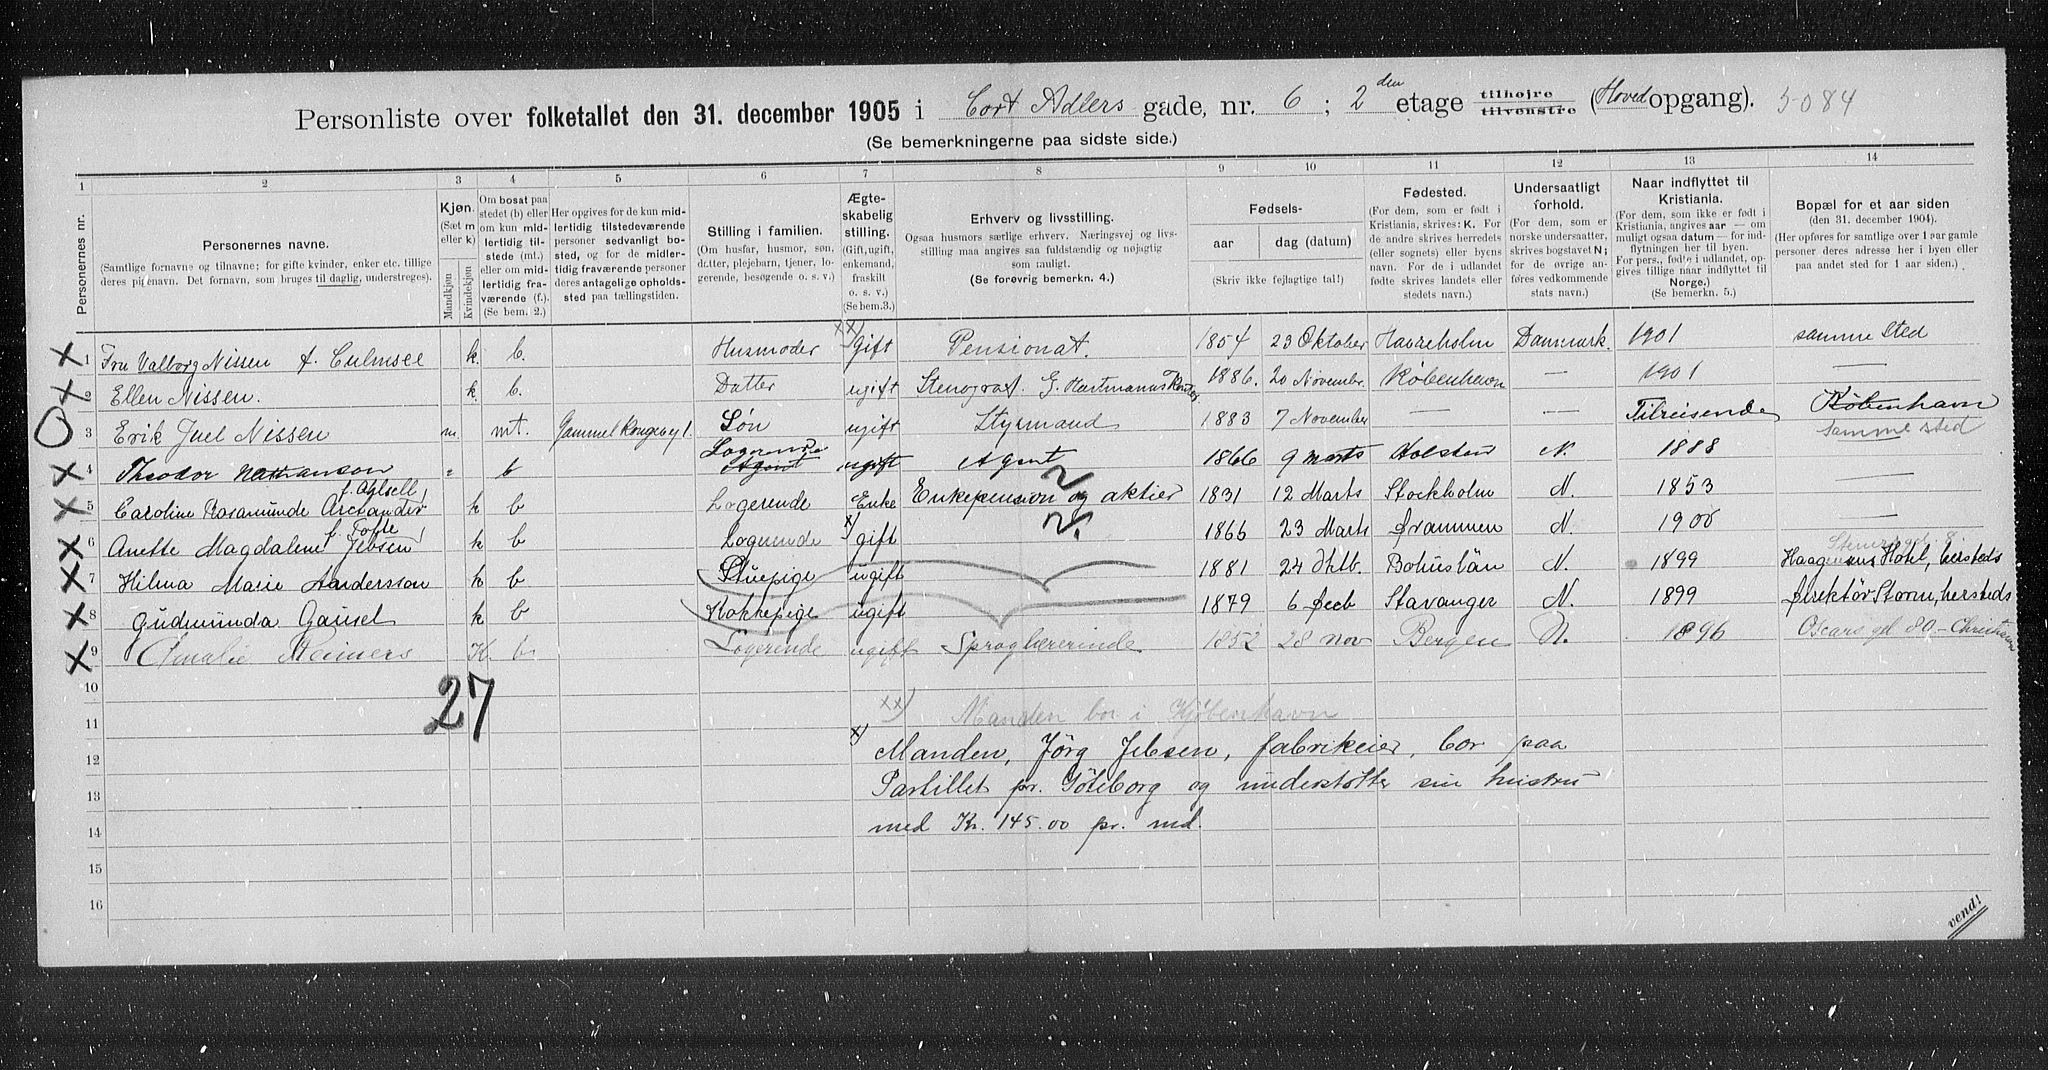 Personliste over folketallet den 31. december 1905 i Cort Adlers gade, nr. 6 ; 2den etage tilhøjre tilvenstre (Hovedopgang). 5084
(Se bemerkningerne paa sidste side.)
1 2 3 4 5 6 7 8 9 10 11 12 13 14
Personernes nr.
Personernes navne.
(Samtlige fornavne og tilnavne; for gifte kvinder, enker etc. tillige
deres pigenavn. Det fornavn, som bruges til daglig, understreges).
Kjøn.
(Sæt m
eller k)
Mandkjøn
Kvindekjøn
Om bosat paa
stedet (b) eller
om kun mid-
lertidig til-
stede (mt.)
eller om mid-
lertidig fra-
værende (f.).
(Se bem. 2.)
Her opgives for de kun mid-
lertidig tilstedeværende
personer sedvanlig bo-
sted, og for de midler-
tidig fraværende personer
deres antagelige opholds-
sted paa tællingstiden.
Stilling i familien.
(Om husfar, husmor, søn,
datter, plejebarn, tjener, lo-
gerende, besøgende o. s. v.)
Ægte-
skabelig
stilling.
(Gift, ugift,
enkemand,
fraskilt
o. s. v.)
(Se bem.3.)
Erhverv og livsstilling.
Ogsaa husmors særlige erhverv. Næringsvej og livs-
stilling maa angives saa fuldstændig og nøjagtig
som muligt.
(Se forøvrig bemerkn. 4.)
Fødsels-
aar
dag (datum)
(Skriv ikke fejlagtige tal!)
Fødested.
(For dem, som er født i
Kristiania, skrives: K. For
de andre skrives herredets
(eller sognets) eller byens
navn. For de i udlandet
fødte skrives landets eller
stedets navn.)
Undersaatligt
forhold.
(For dem, som er
norske undersaatter,
skrives bogstavet N;
for de øvrige an-
føres vedkommende
stats navn.)
Naar indflyttet til
Kristiania.
(For dem, som ikke er født i
Kristiania, angives aar — om
muligt ogsaa datum — for ind-
flytningen her til byen.
For pers., fødte i udlandet, op-
gives tillige naar indflyttet til
Norge.)
(Se bemerkn. 5.)
Bopæl for et aar siden
(den 31. december 1904).
(Her opføres for samtlige over 1 aar gamle
personer deres adresse her i byen eller
paa andet sted for 1 aar siden.)
X 1 Fru Valborg Nissen f. Culmsee k. b. Husmoder xx) gift Pensionat. 1854 23 Oktober Havreholm Danmark. 1901 samme Sted
X 2 Ellen Nissen. k. b. Datter ugift Stenograf. G. Hartmanns Kontor 1886. 20 November København — 1901 —
O 3 Erik Juel Nissen m. mt. Gammel kongevej 1. Søn ugift Styrmand 1883 7 November — — Tilreisende København
samme sted
X 4 Theodor Nathanson b Logerende Agent ugift Agent 1866 9 marts Holsten N. 1888 —
X 5 Caroline Rosamunde Arctander f. Ahlsell k b Logerende Enke Enkepension og aktier 1831 12 Marts Stockholm N. 1853 —
X 6 Anette Magdalene Jebsen f. Tofte k b Logerende x) gift 1866 23 Marts Drammen N. 1900 —
X 7 Hilma Marie Andersson k b Stuepige ugift 1881 24 Oktb. Bohuslän N. 1899 Haagensens Hotel, hersteds
X 8 Gudmunda Gausel k b Kokkepige ugift 1879 6 Feb Stavanger N. 1899 Direktör Storm, hersteds
X 9 Amalie Reimers K. b. Logerende ugift Sproglærerinde 1852 28 nov Bergen N. 1896 Oscars gd 80 – Christiania
10
27
11 xx) Manden bor i Kjøbenhavn
12 x) Manden, Jörg Jebsen, fabrikeier, bor paa
13 Partillet pr. Göteborg og understøtter sin hustru
14 med Kr. 145.00 pr. md.
15
16
vend!